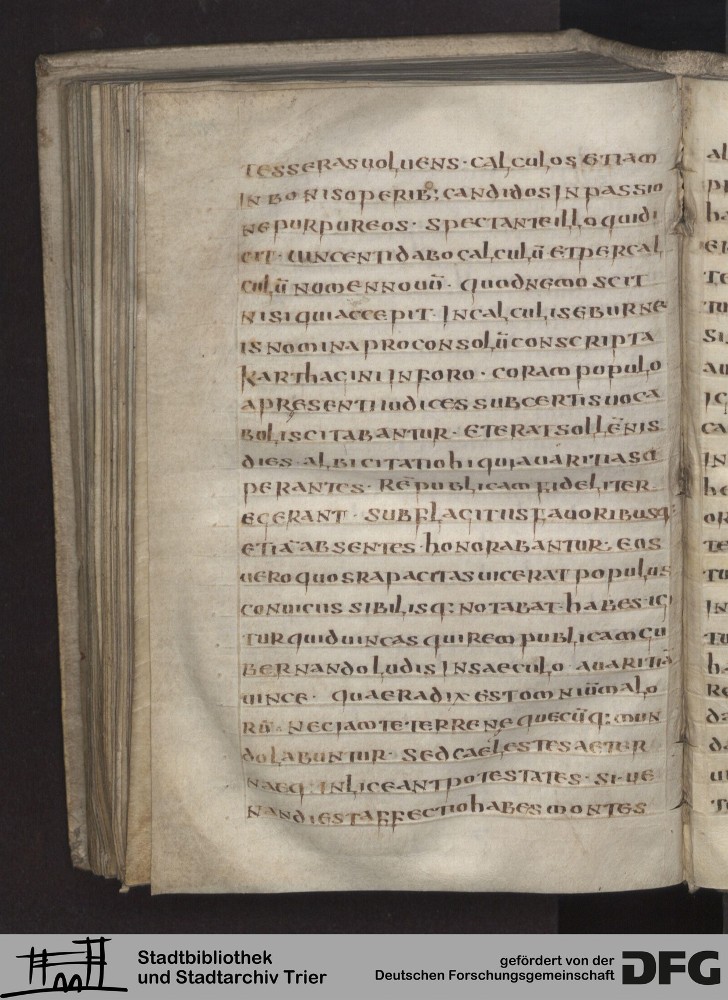 TESSERAS UOLUENS · CALCULOS ETIAM
IN BONIS OPERIB; CANDIDOS IN PASSIO
NE PURPUREOS · SPECTANTE ILLO QUI DI
CIT · UINCENTI DABO CALCULŪ ET PER CAL
CULŪ NOMEN NOUŪ · QUOD NEMO SCIT
NISI QUI ACCEPIT · IN CALCULIS EBURNE
IS NOMINA PROCONSOLŪ CONSCRIPTA
KARTHAGINI IN FORO · CORAM POPULO
A PRESENTI IUDICES SUB CERTIS UOCA
BOLIS CITABANTUR · ET ERAT SOLLĒNIS
DIES · ALBI CITATIO HI QUI AUARITIA SU
PERANTES · REPUBLICAM FIDELITER
EGERANT · SUB FLAGITIIS FAUORIBUSQ;
ETIĀ ABSENTES · HONORABANTUR; EOS
UERO QUOS RAPACITAS UICERAT POPULUS
CONUICIIS SIBILISQ; NOTABAT · HABES IGI
TUR QUID UINCAS QUI REM PUBLICAM GU
BERNANDO LUDIS IN SAECULO · AUARITIĀ
UINCE · QUAE RADIX EST OMNIŪ MALO
RŪ · NEC IAM TE TERRENE QUECŪQ; MUN
DO LABUNTUR · SED CAELESTES AETER
NAEQ; INLICEANT POTESTATES · SI UE
NANDI EST AFFECTIO HABES MONTES
Stadtbibliothek
und Stadtarchiv Trier
gefördert von der
Deutschen Forschungsgemeinschaft
DFG